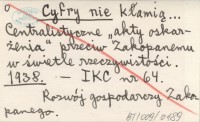 o Cyfry nie kłamią...
Centralistyczne „akty oskar-
żenia" przeciw Zakopanemu
w świetle rzeczywistości.
1938. – IKC nr 64.
Rozwój gospodarczy Zako-
panego.
BT/009/0189